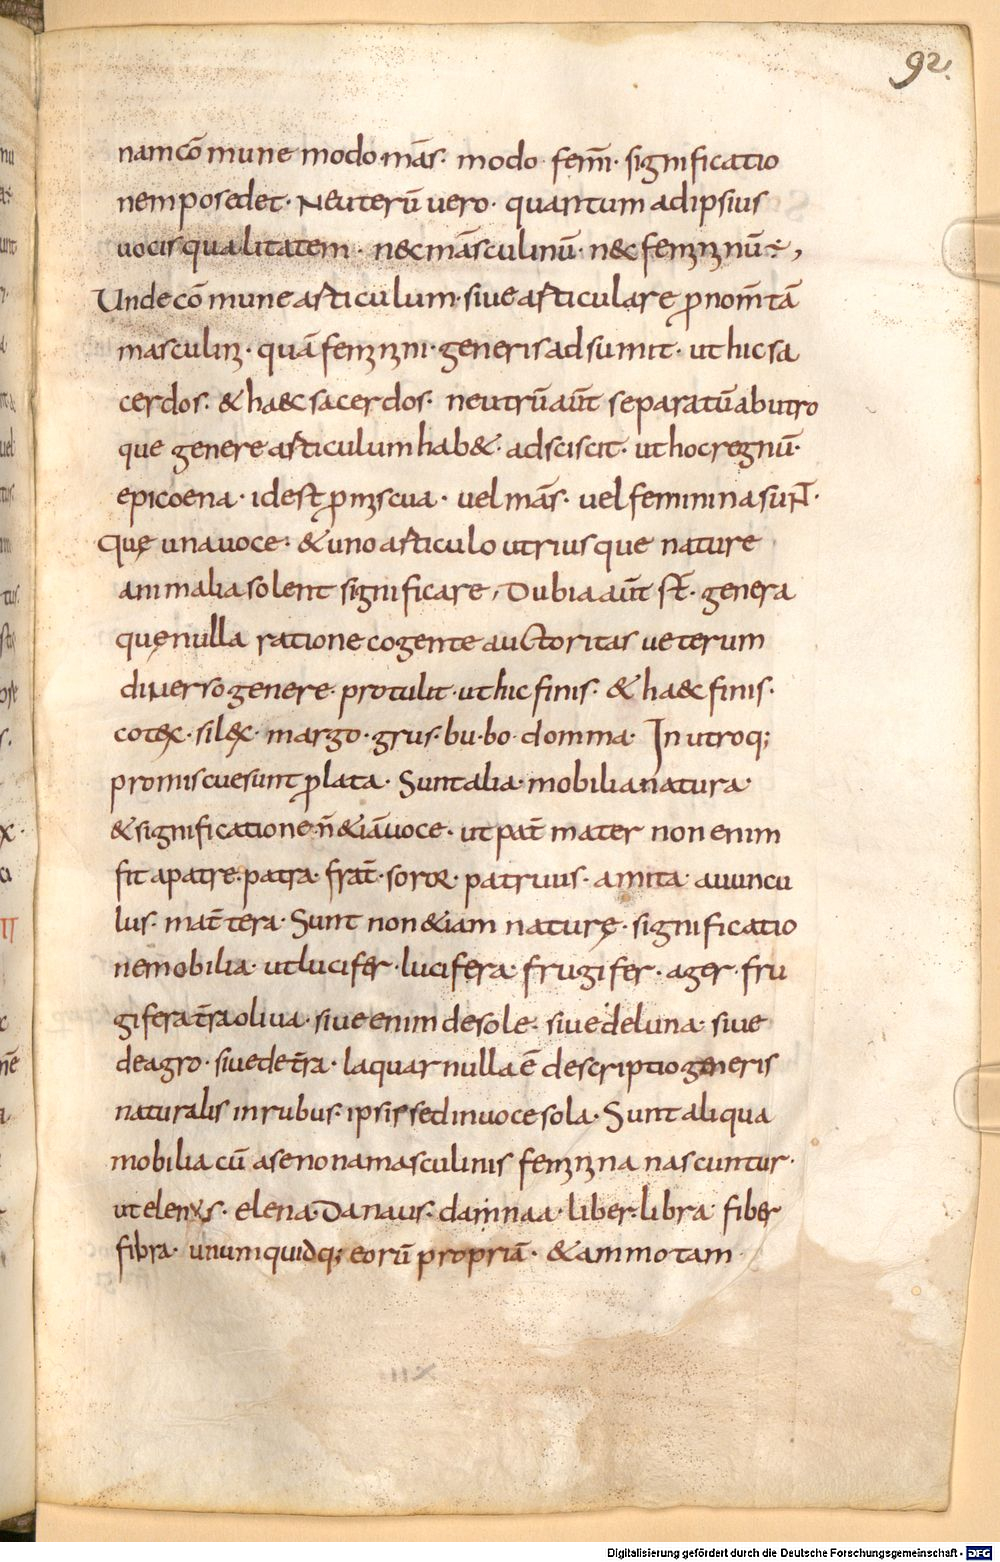 92.
nam cōmune modo mās· modo femī· significatio
nem posedet· Neuterū uero· quantum ad ipsius
uocis qualitatem· nec māsculinū· nec femininū ÷,
Unde cōmune articulum· siue articulare p̄nom̄ tā
masculini· quā feminini· generis adsumit· ut hic sa
cerdos· & haec sacerdos· neutrū aūt separatū ab utro
que genere articulum hab&· adsciscit· ut hoc regnū·
epicoena· id est p̄miscua· uel mās· uel feminina suNT·
Quę una uoce· & uno articulo utriusque nature
animalia solent significare, Dubia aūt st̄· genera
quę nulla ratione cogente auctoritas ueterum
diuerso genere· protulit· ut hic finis· & haec finis·
cotex· silex· margo· grus· bu·bo· domma· In utroq;
promiscue sunt p̄lata· Sunt alia· mobilia natura·
& significatione· n̄ &iā uoce· ut pat̄ mater non enim
fit a patre· patra· frat̄· soror· patruus· amita· auuncu
lus· mat̄tera· Sunt non &iam naturę· significatio
ne mobilia· ut lucifer· lucifera· frugifer· ager· fru
gifera t̄ra oliua· siue enim de sole· siue de luna· siue
de agro· siue de t̄ra· laquar nulla ē descriptio generis
naturalis in rubus· ipsis sed in uoce sola· Sunt aliqua
mobilia cū aseno na masculinis feminina nascuntur·
ut elenus· elena· Danaus· damnaa· liber· libra· fiber
fibra· unumquidq; eorū propriā· & ammotam
Digitalisierung gefördert durch die Deutsche Forschungsgemeinschaft - DFG